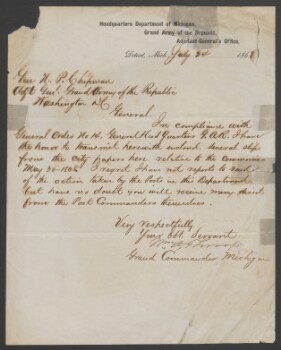 Headquarters Department of Michigan,
Grand Army of the Republic,
Adjutant-General's Office,
Detroit, Mich. July 2d 1868
Gen N. P. Chipman
Adjt Genl Grand Army of the Republic
Washington D.C.
General.
In compliance with
General Order No 14. General Head Quarters G.A.R. I have
the honor to transmit herewith several slips
from the City papers here relative to the Ceremonies
May 30. 1868. I regret I have not reports to send
of the action taken by the Posts in this Department
but have no doubt you will receive many direct
from the Post Commanders themselves.
Very respectfully
Your Obt Servant
Grand Commander Michigan